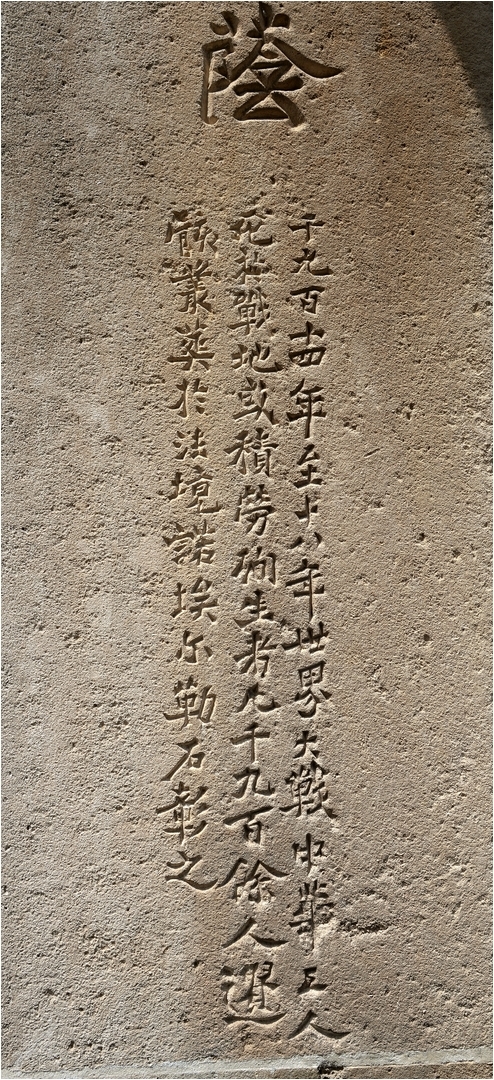 蔭
千九百十四年至十八年世界大戰中華工人
死於戰地或積勞殉生者凡千九百餘人遺
骸叢葬於法境諾埃尔勒石彰之